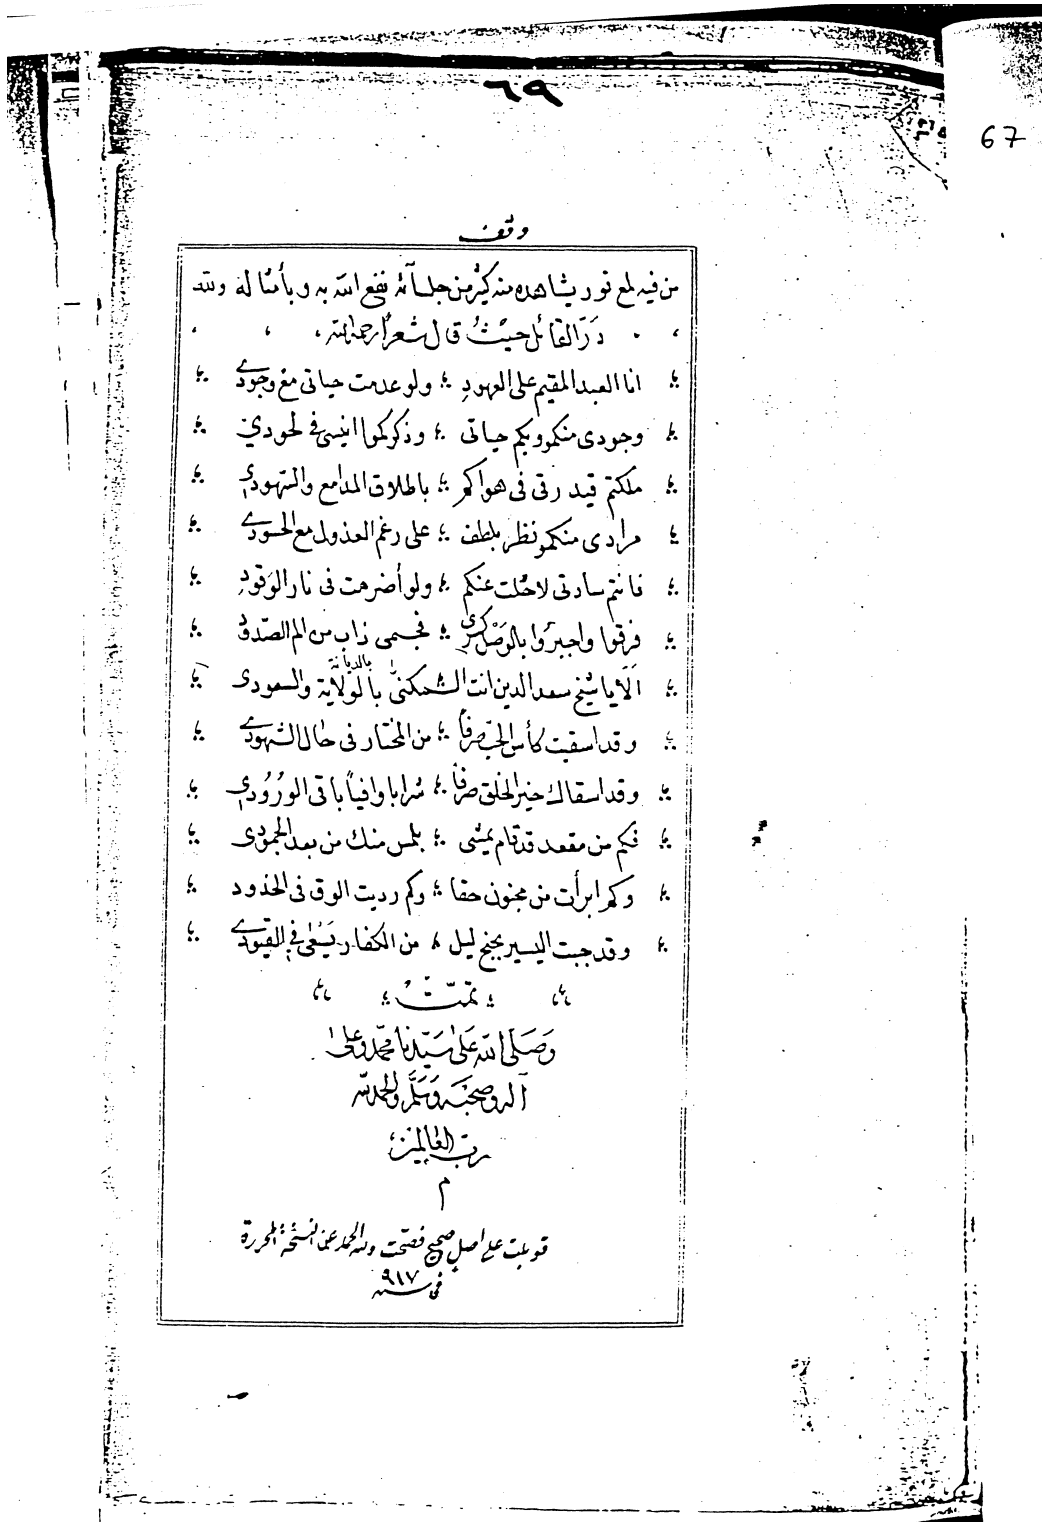 ٦٩
67
وقف
من فيه لمع نور يشاهده منه كثير من جلسائه نفع الله به وبأمثاله ولله
در القائل حيث قال شعراً رحمه الله
انا العبد المقيم على العهود ؛ ولو عدمت حياتي مع وجودي
وجودي منكمو وبكم حياتي ؛ وذكركموا انيسي في لحودي
ملكتم قيد رقي في هواكم ؛ باطلاق المدامع والشهودي
مرادي منكمو نظر بلطف ؛ على رغم العذول مع الحسودي
فانتم سادتي لا حلت عنكم ؛ ولو أضرمت في نار الوَقودِ
فرقوا واجبرُوا بالوَصْل كسري ؛ فجسمي ذاب من الم الصّدود
الَا يا شيخ سعد الدين انت المكنىّ بالولاية والسعودي
بالديانة
وقد اسقيت كأس الحبّ صرفاً ؛ من المختار في حال الشهودي
وقد اسقاك خير الخلق صرفاً ؛ شرابا وافياً باقي الورُوُدي
فكم من مقعد قد قام يمشي ؛ بلمس منك من بعد الجمودي
وكم ابرأت من مجنون حقا ؛ وكم رديت الوق في الخدود
وقد جبت اليسير بجنح ليل ؛ من الكفار يَسْعىٰ في القيودي
تمّتْ
وَصَلى الله عَلى سَيّدنا محمّد وعلىٰ
آله وصحبَه وَسَلَّم والحمد لله
ربّ العٰالمين
م
قوبلت على اصل صحيح فصحّت ولله الحمد عن النسخة المحررة
في سنة ٩١٧